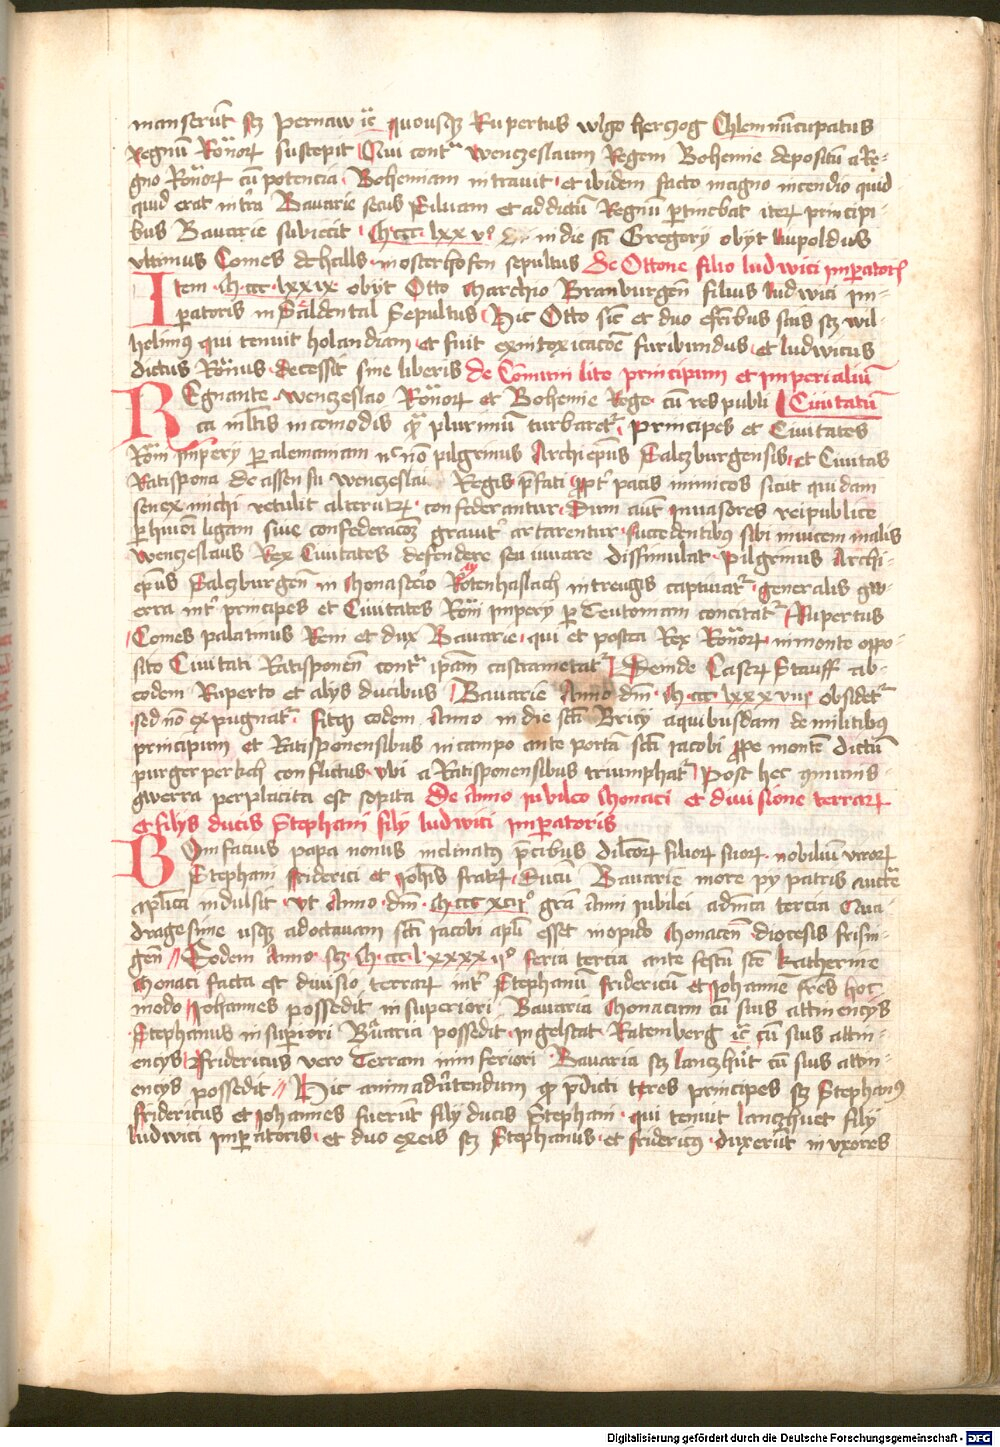 manserūt sz Pernaw ıc̄ quousqz Rupertus wlgo herczog Chlem nūcupatus
Regnū Romor͛ suscepit Qui contra wenczeslaum Regem Bohemie depositū a Re-
gno Romor͛ cū potencia Bohemiam intrauit et ibidem facto magno incendio quid-
quid erat intra Bauarie secus Siluam et ad dictū Regnū ptinebat iterz principi-
bus Bauarie subiecit M ccc lxx vº in die sti Gregory obyt lupoldus
vltimus Comes de halls in osterhofen sepultus De Ottone filio ludwici impatoris
Item M ccc lxxix obyt Otto Marchio Branburgeñ filius ludwici im-
patoris in Säldental Sepultus Hic Otto sic et duo frēs suis sz wil-
helmus qui tenuit holandiam et fuit ex intoxicacōe furibundus et ludwicus
dictus Romus decessit sine liberis De Comuni lite principum et imperialiū
REgnante wenczeslao Romor͛ et Bohemie Rege cū res publi Ciuitatū
ca multis incomodis qz plurimū turbaretr principes et Ciuitates
Romi impery p alemaniam nc nō pilgrimus Archiepus Salczburgensis et Ciuitas
Ratispona de assensu wenczeslai Regis pfati ppt pacis inimicos sicut quidam
senex michi retulit alterutrz confederantur Dum aut inuasores reipublice
p huiōi ligam siue confederacōz grauit artarentur succedentibus sibi inuicem malis
wenczeslaus Rex Ciuitates defendere seu iuuare dissimulat pilgrimus Archi-
epus Salczburgeñ in Monasterio Rotenhaslach in treugis captiuatr generalis gw-
erra intr principes et Ciuitates Romi impery p Teutoniam concitatr Rupertus
Comes palatinus Reni et dux Bauarie qui et postea Rex Romor͛ in monte oppo-
sito Ciuitati Ratisponeñ contra ipam castrametatr Deinde Castrz Stauff ab
eodem Ruperto et alys ducibus Bauarie Anno dm M ccc lxxx viiiº obsidetr
sed nō expugnatr Sitqz eodem Anno in die sti Bricy a quibusdam de militibus
principum et Ratisponensibus in campo ante portā sti iacobi ppe montē dictū
purgerperkch conflictus vbi a Ratisponensibus triumphatr Post hec omnis
gwerra per placita est sopita De Anno iubileo Monaci et diuisione terrarz
et filys ducis Stephani fily ludwici impatoris
BOnifacius papa nonus inclinatus pcibus dilcorz filiorz suorz nobiliū virorz
Stephani friderici et Johis fratrz Ducū Bauarie more py patris aucte
aplica indulsit vt Anno dm M ccc xcijº gra Anni iubilei a dnica tercia Qua-
dragesime usqz ad octauam sti iacobi apli esset in opido Monaceñ diocesis frisin-
geñ Eodem Anno sz M ccc lxxxx ijº feria tercia ante festū stē katherine
Monaci facta est diuisio terrarz intr Stephanū fridericū et Johannē frēs hoc
modo Johannes possedit in superiori Bauaria Monacum cū suis attinencys
Stephanus in supiori Bauaria possedit Ingelstat Ratemberg ıc̄ cū suis attin-
encys Fridericus vero Terram in inferiori Bauaria sz lanczhut cū suis attin-
encys possedit Hic animaduertendum qz pdicti tres principes sz Stephanus
fridericus et Johannes fuerūt fily ducis Stephani qui tenuit lanczhuet fily
ludwici impatoris et duo ex eis sz Stephanus et fridericus duxerūt in vxores
Digitalisierung gefördert durch die Deutsche Forschungsgemeinschaft - DFG